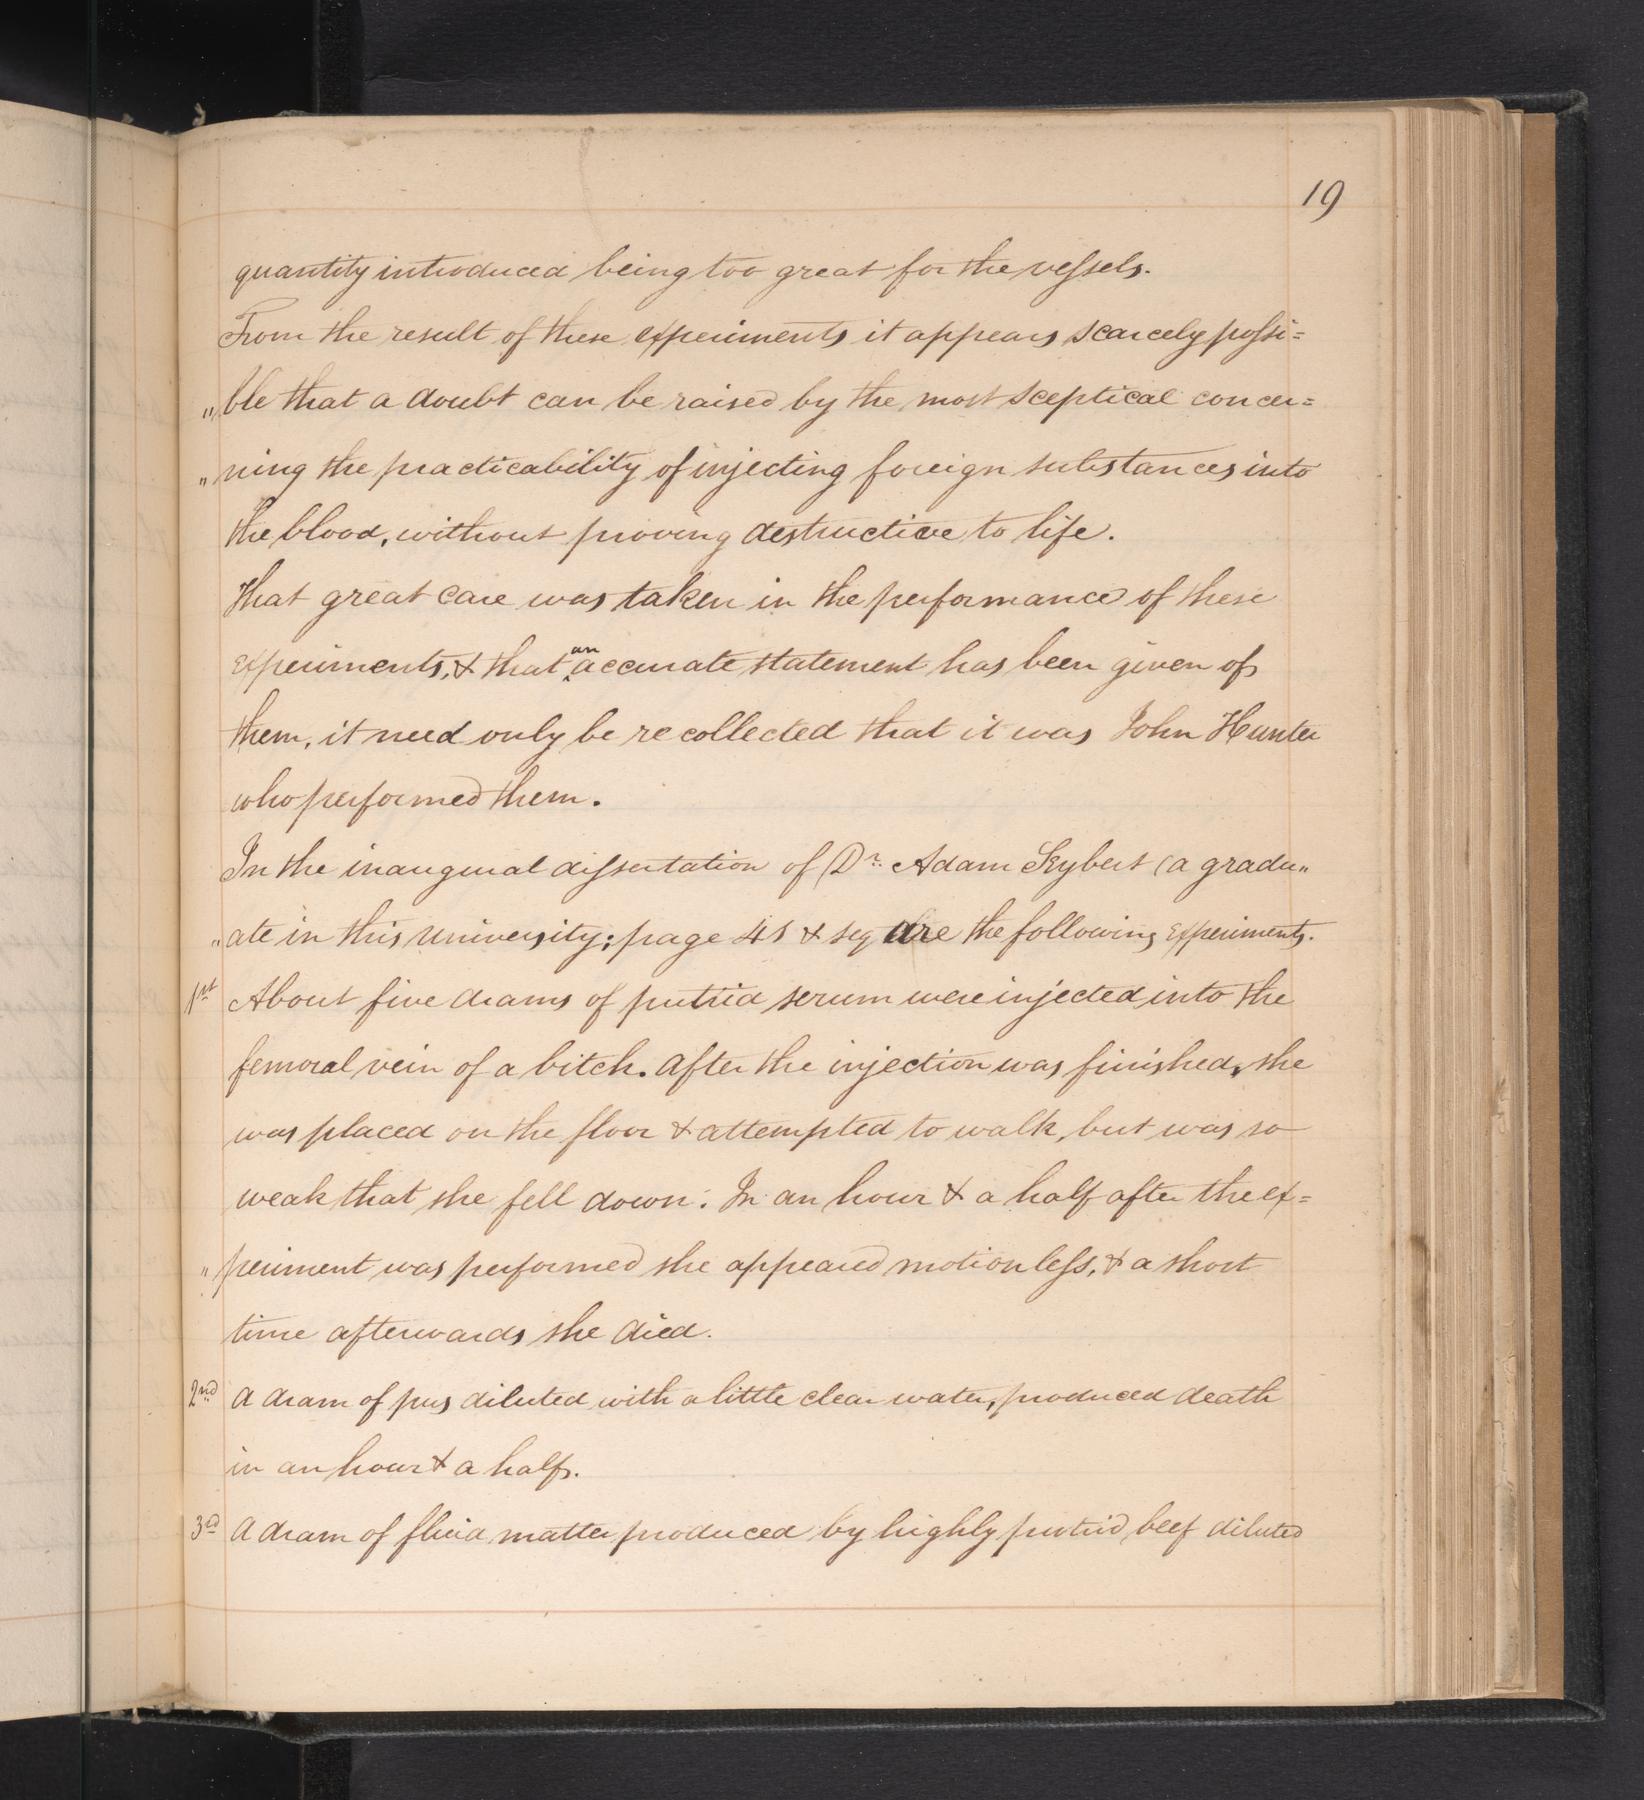 19
quantity introduced being too great for the vessels.
From the result of these experiments it appears scarcely possi=
„ble that a doubt can be raised by the most sceptical concer=
„ning the practicability of injecting foreign substances into
the blood, without proving destructive to life.
That great care was taken in the performance of these
experiments, & that an accurate statement has been given of
them, it need only be recollected that it was John Hunter
who performed them.
In the inaugural dissertation of Dr. Adam Seybert (a gradu„
„ate in this university; page & seq are the following experiments.
1st About five drams of putrid serum were injected into the
femoral vein of a bitch. After the injection was finished, she
was placed on the floor & attempted to walk, but was so
weak that she fell down. In an hour & a half after the ex=
„periment was performed she appeared motionless, & a short
time afterwards she died.
2nd A dram of pus diluted with a little clear water, produced death
in an hour & a half.
3rd A dram of fluid matter produced by highly putrid beef diluted